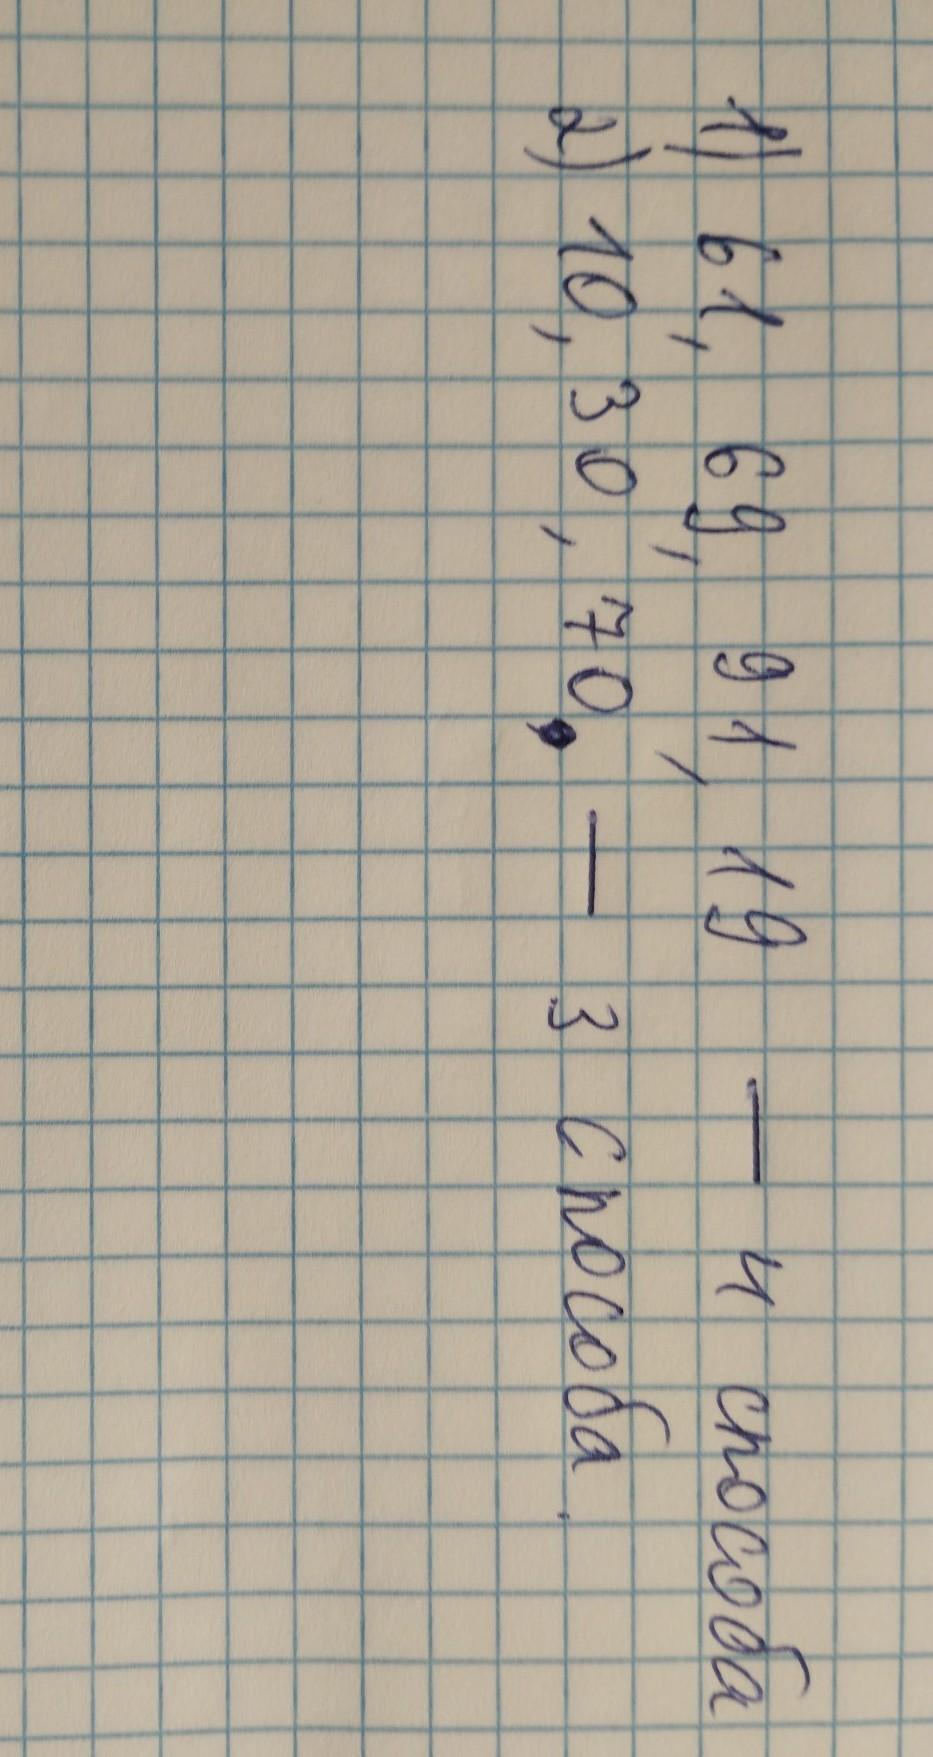 1) 61, 69, 91, 19 — 4 способа
2) 10, 30, 70, — 3 способа.